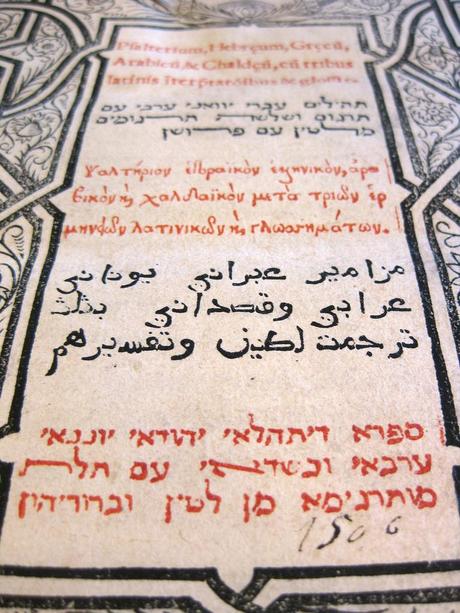 Psalterium, Hebręum, Gręcū,
Arabicū, & Chaldęū, cū tribus
latinis ĩterp̃tatõibus & glossis.
תהילים עברי יוואני ערבי עם
תרגום ושלשת תרגומים
מלטין עם פרושן
Ψαλτήριον ἑβραϊκὸν ἑληνικὸν, ἀρα
βικὸν ἢ χαλδαϊκὸν μετὰ τριῶν ἑρ
μηνφῶν λατινικῶν ἢ γλωσημάτων.
مزامير عبراني يوناني
عرابي وقصداني بثلث
ترجمت لطين وتفسيرهم
ספרא דיתהלאי יהודאי יוננאי
ערבאי וכשדאי עם תלת
מותרגימא מן לטין וברוריהון
1506